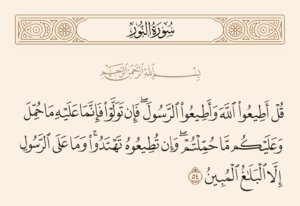 سُورَةُ النُّورِ
بِسْمِ اللَّهِ الرَّحْمَٰنِ الرَّحِيمِ
قُلْ أَطِيعُوا۟ ٱللَّهَ وَأَطِيعُوا۟ ٱلرَّسُولَ ۖ فَإِن تَوَلَّوْا۟ فَإِنَّمَا عَلَيْهِ مَا حُمِّلَ
وَعَلَيْكُم مَّا حُمِّلْتُمْ ۖ وَإِن تُطِيعُوهُ تَهْتَدُوا۟ ۚ وَمَا عَلَى ٱلرَّسُولِ
إِلَّا ٱلْبَلَـٰغُ ٱلْمُبِينُ ٥٤